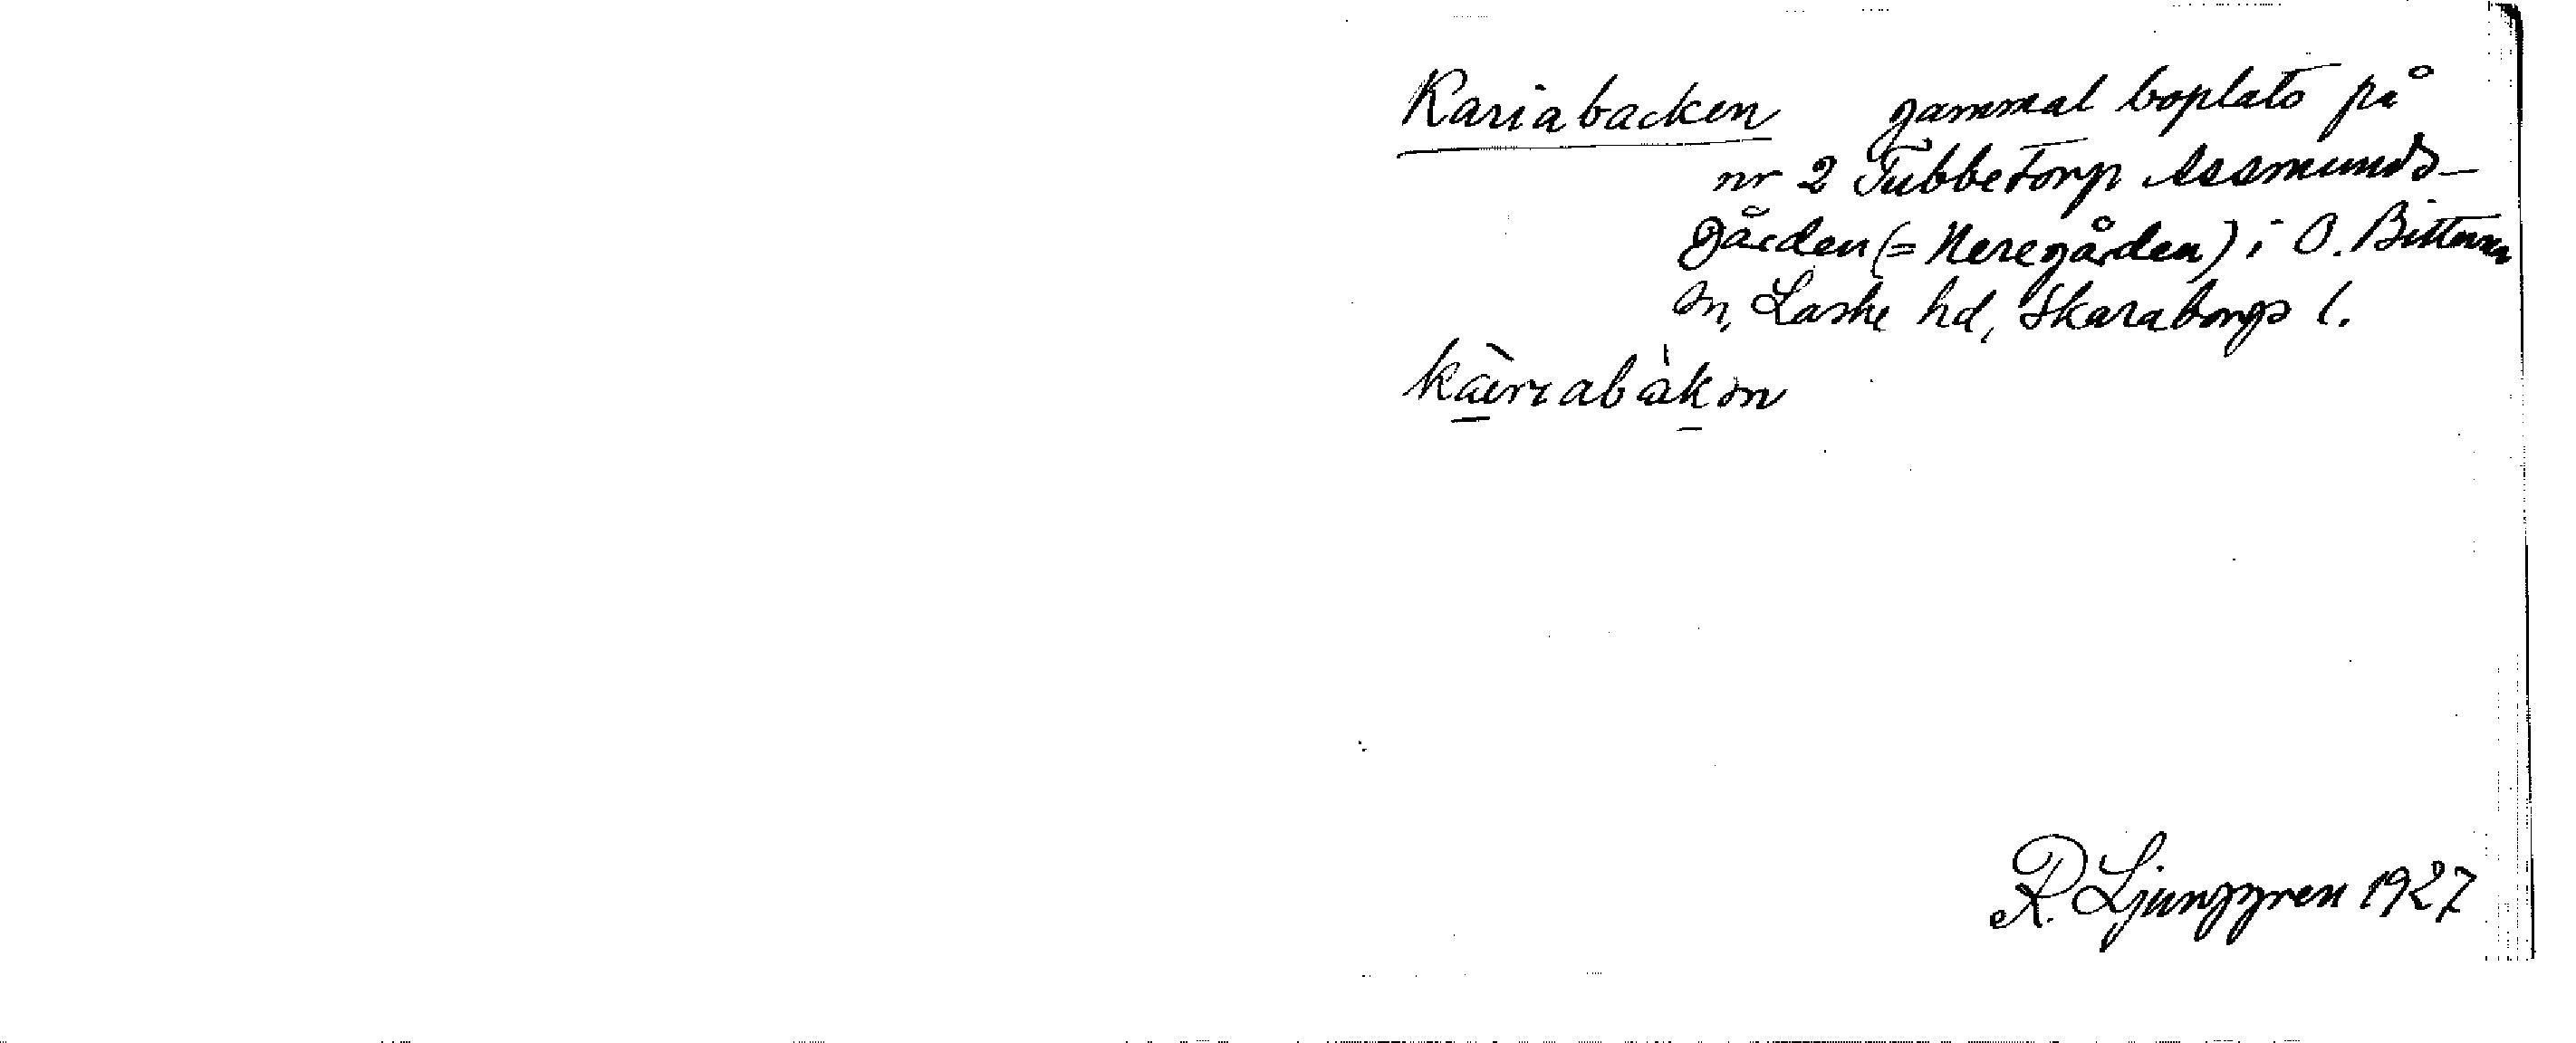 Kariabacken gammal boplats på
nr 2 Tubbetorp Assmunds-
gården (= Neregården) i Ö. Bitterna
sn, Laske hd, Skaraborgs l.
kàrıabàkən
R. Ljunggren 1927